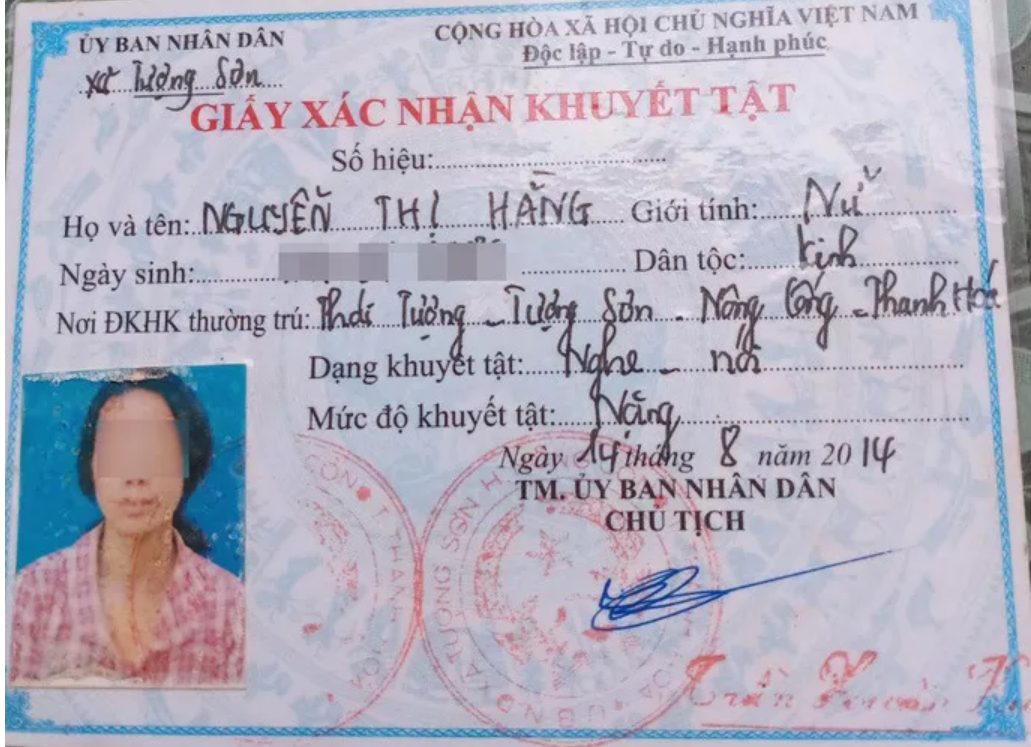 ỦY BAN NHÂN DÂN
xã Tượng Sơn
CỘNG HÒA XÃ HỘI CHỦ NGHĨA VIỆT NAM
Độc lập - Tự do - Hạnh phúc
GIẤY XÁC NHẬN KHUYẾT TẬT
Số hiệu:
Họ và tên: NGUYỄN THỊ HẰNG Giới tính: Nữ
Ngày sinh: Dân tộc: Kinh
Nơi ĐKHK thường trú: Thái Tượng - Tượng Sơn - Nông Cống - Thanh Hóa
Dạng khuyết tật: Nghe - nói
Mức độ khuyết tật: Nặng
Ngày 14 tháng 8 năm 2014
TM. ỦY BAN NHÂN DÂN
CHỦ TỊCH
Trần